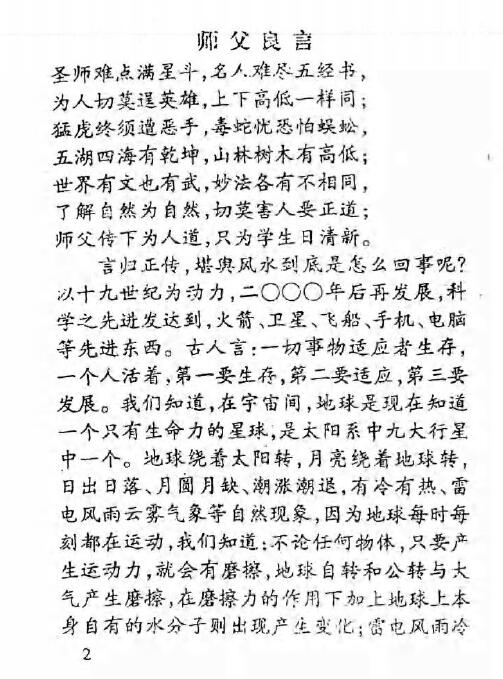 师父良言
圣师难点满星斗，名人难尽五经书，
为人切莫逞英雄，上下高低一样同；
猛虎终须遭恶手，毒蛇忧恐怕蜈蚣，
五湖四海有乾坤，山林树木有高低；
世界有文也有武，妙法各有不相同，
了解自然为自然，切莫害人要正道；
师父传下为人道，只为学生日清新。
言归正传，堪舆风水到底是怎么回事呢？
以十九世纪为动力，二〇〇〇年后再发展，科
学之先进发达到，火箭、卫星、飞船、手机、电脑
等先进东西。古人言：一切事物适应者生存，
一个人活着，第一要生存，第二要适应，第三要
发展。我们知道，在宇宙间，地球是现在知道
一个只有生命力的星球，是太阳系中九大行星
中一个。地球绕着太阳转，月亮绕着地球转，
日出日落、月圆月缺、潮涨潮退，有冷有热、雷
电风雨云雾气象等自然现象，因为地球每时每
刻都在运动，我们知道：不论任何物体，只要产
生运动力，就会有磨擦，地球自转和公转与大
气产生磨擦，在磨擦力的作用下加上地球上本
身自有的水分子则出现产生变化；雷电风雨冷
2